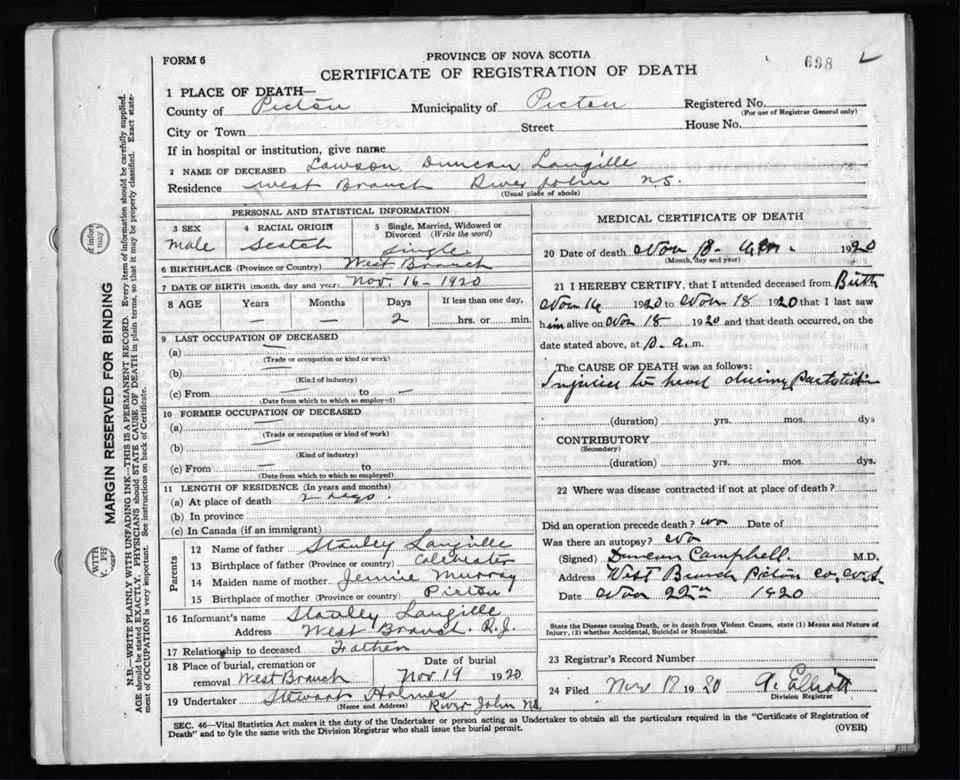 FORM 6
PROVINCE OF NOVA SCOTIA
698
CERTIFICATE OF REGISTRATION OF DEATH
1 PLACE OF DEATH—
County of Pictou Municipality of Pictou Registered No.
(For use of Registrar General only)
City or Town Street House No.
If in hospital or institution, give name
2 NAME OF DECEASED Lawson Duncan Langille
Residence West Branch River John N.S.
(Usual place of abode)
PERSONAL AND STATISTICAL INFORMATION
3 SEX 4 RACIAL ORIGIN 5 Single, Married, Widowed or Divorced (Write the word)
Male Scotch Single
6 BIRTHPLACE (Province or Country) West Branch
7 DATE OF BIRTH (month, day and year) Nov. 16 - 1920
8 AGE Years Months Days If less than one day,
— — 2 hrs. or min.
9 LAST OCCUPATION OF DECEASED
(a) —
(Trade or occupation or kind of work)
(b) —
(Kind of industry)
(c) From — to —
(Date from which to which so employed)
10 FORMER OCCUPATION OF DECEASED
(a) —
(Trade or occupation or kind of work)
(b) —
(Kind of industry)
(c) From — to
(Date from which to which so employed)
11 LENGTH OF RESIDENCE (In years and months)
(a) At place of death 2 days.
(b) In province
(c) In Canada (if an immigrant)
Parents
12 Name of father Stanley Langille
13 Birthplace of father (Province or country) Colchester
14 Maiden name of mother Jennie Murray
15 Birthplace of mother (Province or country) Pictou
16 Informant's name Stanley Langille
Address West Branch. R.J.
17 Relationship to deceased Father
18 Place of burial, cremation or removal West Branch Date of burial Nov 19 1920
19 Undertaker Stewart Holmes
(Name and Address) River John NS.
MEDICAL CERTIFICATE OF DEATH
20 Date of death Nov 18 1920
(Month, day and year)
21 I HEREBY CERTIFY, that I attended deceased from Birth
Nov 16 1920 to Nov 18 1920 that I last saw
him alive on Nov 18 1920 and that death occurred, on the
date stated above, at 10 a.m.
The CAUSE OF DEATH was as follows:
Injuries to head during
(duration) yrs. mos. dys
CONTRIBUTORY
(Secondary)
(duration) yrs. mos. dys.
22 Where was disease contracted if not at place of death?
Did an operation precede death? no Date of
Was there an autopsy? no
(Signed) Duncan Campbell. M.D.
Address West Branch Pictou Co. N.S.
Date Nov 22nd 1920
State the Disease causing Death, or in death from Violent Causes, state (1) Means and Nature of
Injury, (2) whether Accidental, Suicidal or Homicidal.
23 Registrar's Record Number
24 Filed Nov 18 1920 A. Elliott
Division Registrar
SEC. 46—Vital Statistics Act makes it the duty of the Undertaker or person acting as Undertaker to obtain all the particulars required in the "Certificate of Registration of
Death" and to fyle the same with the Division Registrar who shall issue the burial permit.
(OVER)
MARGIN RESERVED FOR BINDING
N.B.—WRITE PLAINLY WITH UNFADING INK—THIS IS A PERMANENT RECORD. Every item of information should be carefully supplied.
AGE should be stated EXACTLY. PHYSICIANS should STATE CAUSE OF DEATH in plain terms, so that it may be properly classified. Exact state-
ment of OCCUPATION is very important. See instructions on back of Certificate.